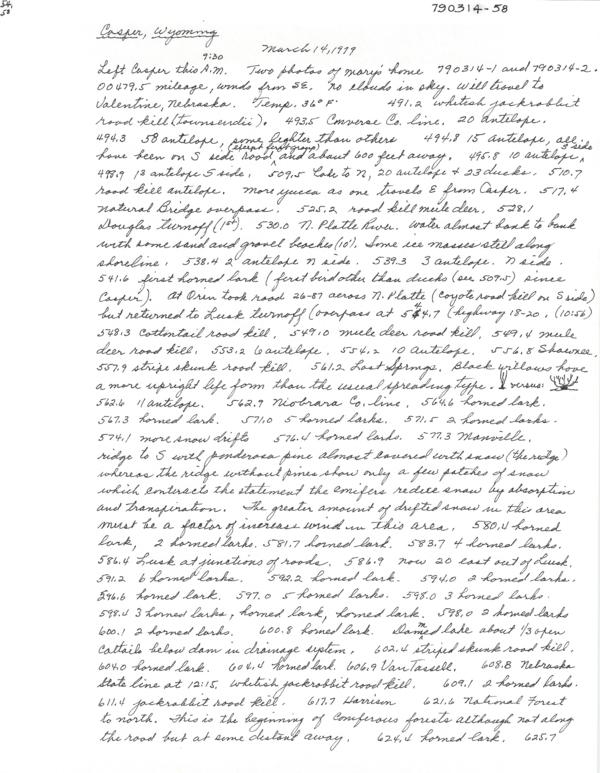 54,
58
790314-58
Casper, Wyoming
March 14, 1979
9:30
Left Casper this A.M. Two photos of Mary's home 790314-1 and 790314-2.
00479.5 mileage, winds from SE. no clouds in sky. Will travel to
Valentine, Nebraska. Temp. 36°F. 491.2 whitish jackrabbit
road kill (townsendii). 493.5 Converse Co. line. 20 antelope.
494.3 58 antelope, some lighter than others 494.8 15 antelope, all
(except first group) S side
have been on S side road and about 600 feet away. 495.8 10 antelope,
498.9 13 antelope S side. 509.5 Lake to N, 20 antelope & 23 ducks. 510.7
road kill antelope. More yucca as one travels E from Casper. 517.4
natural Bridge overpass. 525.2 road kill mule deer. 528.1
Douglas turnoff (1st). 530.0 N. Platte River. Water almost bank to bank
with some sand and gravel beaches (10'). Some ice masses still along
shoreline. 538.4 2 antelope N side. 539.3 3 antelope. N side.
541.6 first horned lark (first bird other than ducks (see 509.5) since
Casper). At Orin took road 26-87 across N. Platte (coyote road kill on S side)
but returned to Lusk turnoff (overpass at 544.7 (highway 18-20. (10:56)
548.3 Cottontail road kill. 549.0 mule deer road kill, 549.4 mule
deer road kill. 553.2 6 antelope. 554.2 10 Antelope. 556.8 Shawnee.
557.9 stripe skunk road kill. 561.2 Lost Springs. Black willows have
a more upright life form than the usual spreading type. versus
562.6 11 antelope. 562.9 Niobrara Co. line. 564.6 horned lark.
567.3 horned lark. 571.0 5 horned larks. 571.5 2 horned larks.
574.1 more snow drifts 576.4 horned larks. 577.3 Manville,
ridge to S with ponderosa pine almost covered with snow (the ridge)
whereas the ridge without pines show only a few patches of snow
which contracts the statement the conifers reduce snow by absorption
and transpiration. The greater amount of drifted snow in this area
must be a factor of increase wind in this area. 580.4 horned
lark, 2 horned larks. 581.7 horned lark. 583.7 4 horned larks.
586.4 Lusk at junctions of roads. 586.9 now 20 east out of Lusk.
591.2 6 horned larks. 592.2 horned lark. 594.0 2 horned larks.
596.6 horned lark. 597.0 5 horned larks. 598.0 3 horned larks.
598.4 3 horned larks, horned lark, horned lark. 598.0 2 horned larks
600.1 2 horned larks. 600.8 horned lark. Dammed lake about 1/3 open
Cattails below dam in drainage system. 602.4 striped skunk road kill.
604.0 horned lark. 604.4 horned lark 606.9 Van Tassell. 608.8 Nebraska
State line at 12:15, whitish jackrabbit road kill. 609.1 2 horned larks.
611.4 jackrabbit road kill. 617.7 Harrison 621.6 National Forest
to north. This is the beginning of Coniferous forests although not along
the road but at some distant away. 624.4 horned lark. 625.7